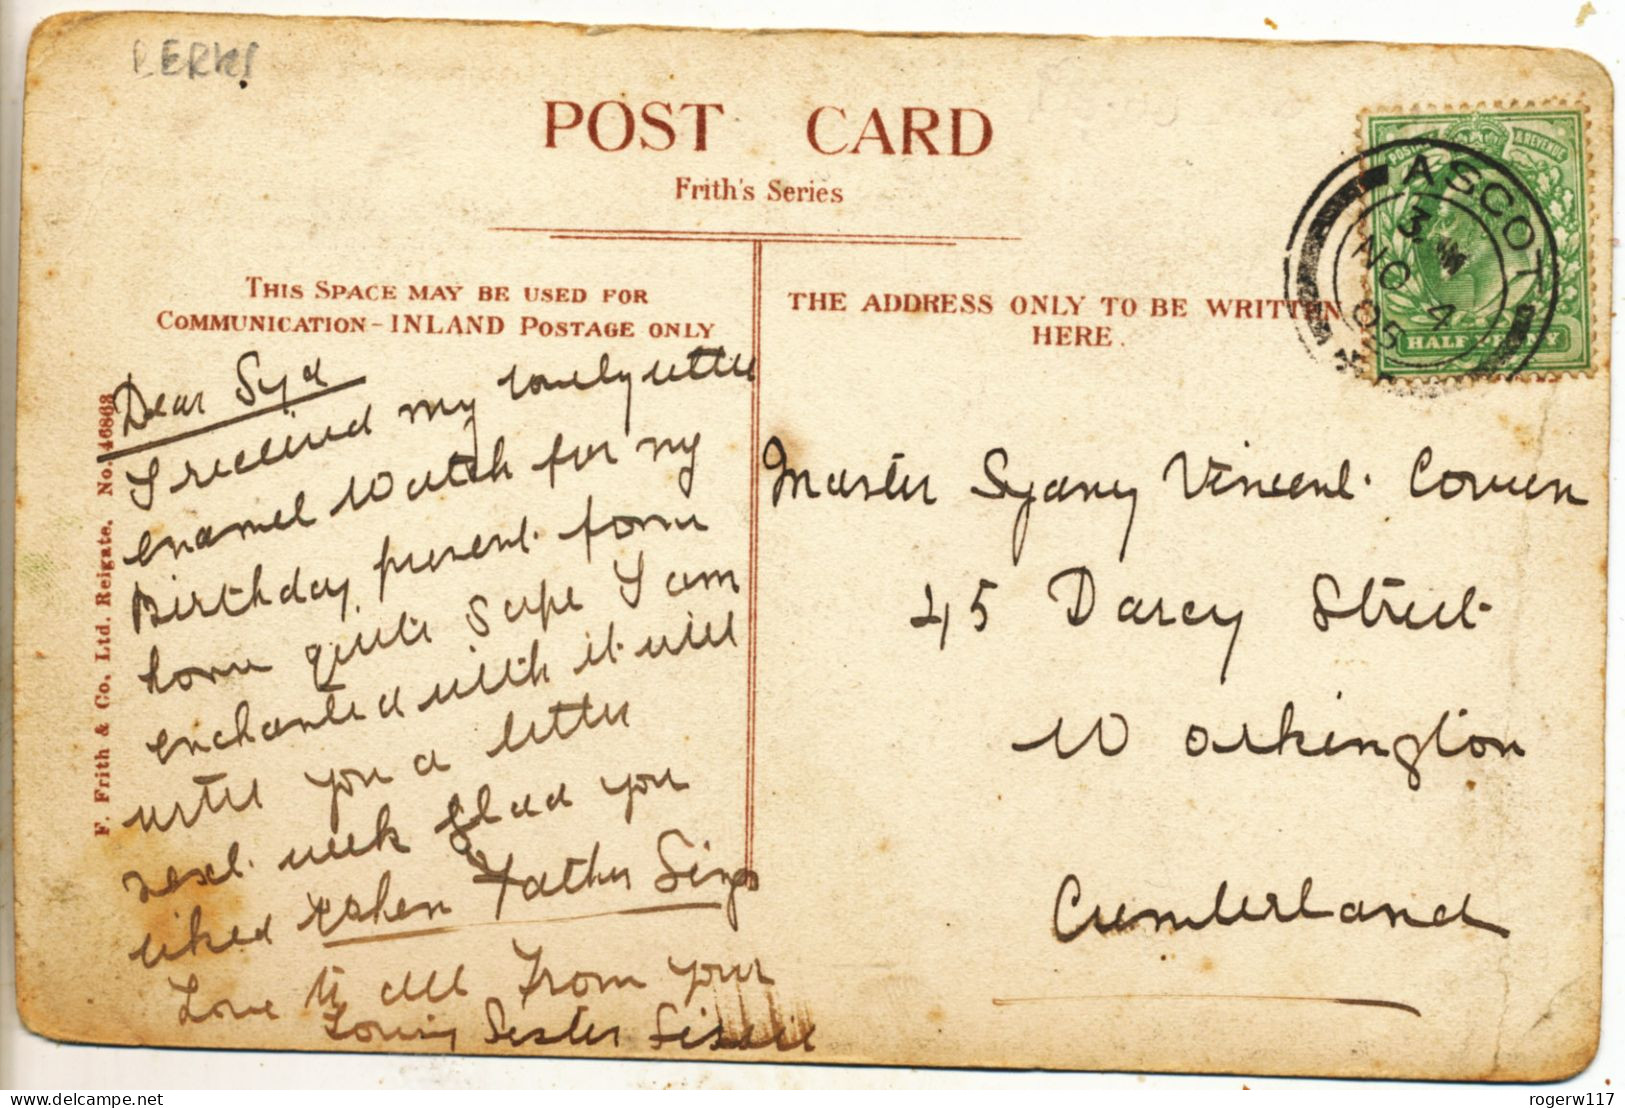 BERKS
POST CARD
Frith's Series
THIS SPACE MAY BE USED FOR
COMMUNICATION - INLAND POSTAGE ONLY
THE ADDRESS ONLY TO BE WRITTEN
HERE.
POSTAGE & REVENUE
HALF PENNY
ASCOT
3
NO 4
05
F. Frith & Co. Ltd. Reigate. No. 46863
Dear Syd
I received my lovely little
enamel Watch for my
Birthday present. from
home quite safe I am
enchanted with it will
write you a letter
next week glad you
liked when Father Sings
Love to all From your
Loving Sister Sissie
Master Sydney Vincent Cowen
45 Darcy Street
Workington
Cumberland
delcampe.net
rogerw117